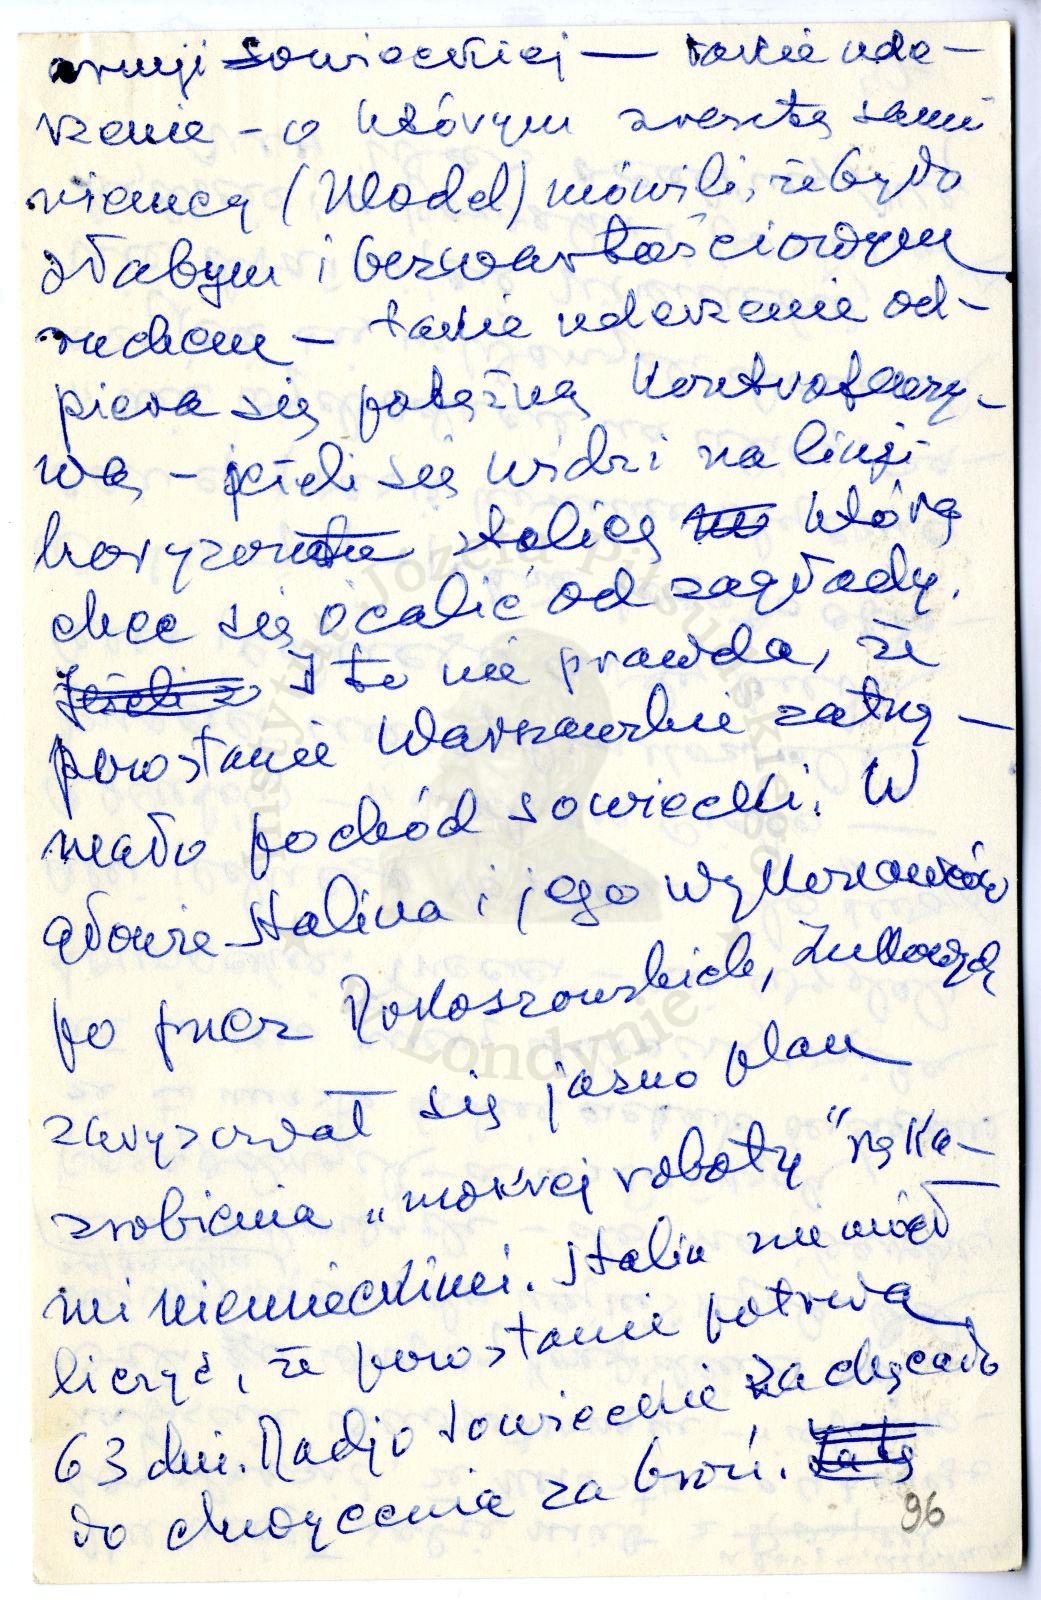 armji sowieckiej — takie ude-
rzenie - o którym zresztą sami
niemcy (Model) mówili, że było
słabym i bezwartościowym
ruchem — takie uderzenie od-
piera się potężną kontrofenzy-
wą - jeżeli się widzi na linji
horyzontu stolicę którą
chce się ocalić od zagłady.
I to nie prawda, że
powstanie Warszawskie zatrzy-
mało pochód sowiecki. W
głowie Stalina i jego wykonawców
po przez Rokossowskich, Żukowych
zarysował się jasno plan
zrobienia „mokrej roboty" ręka-
mi niemieckimi. Stalin nie mógł
liczyć, że powstanie potrwa
63 dni. Radjo sowieckie zachęcało
do chwycenia za broń.
96
Instytut Józefa Piłsudskiego
w Londynie